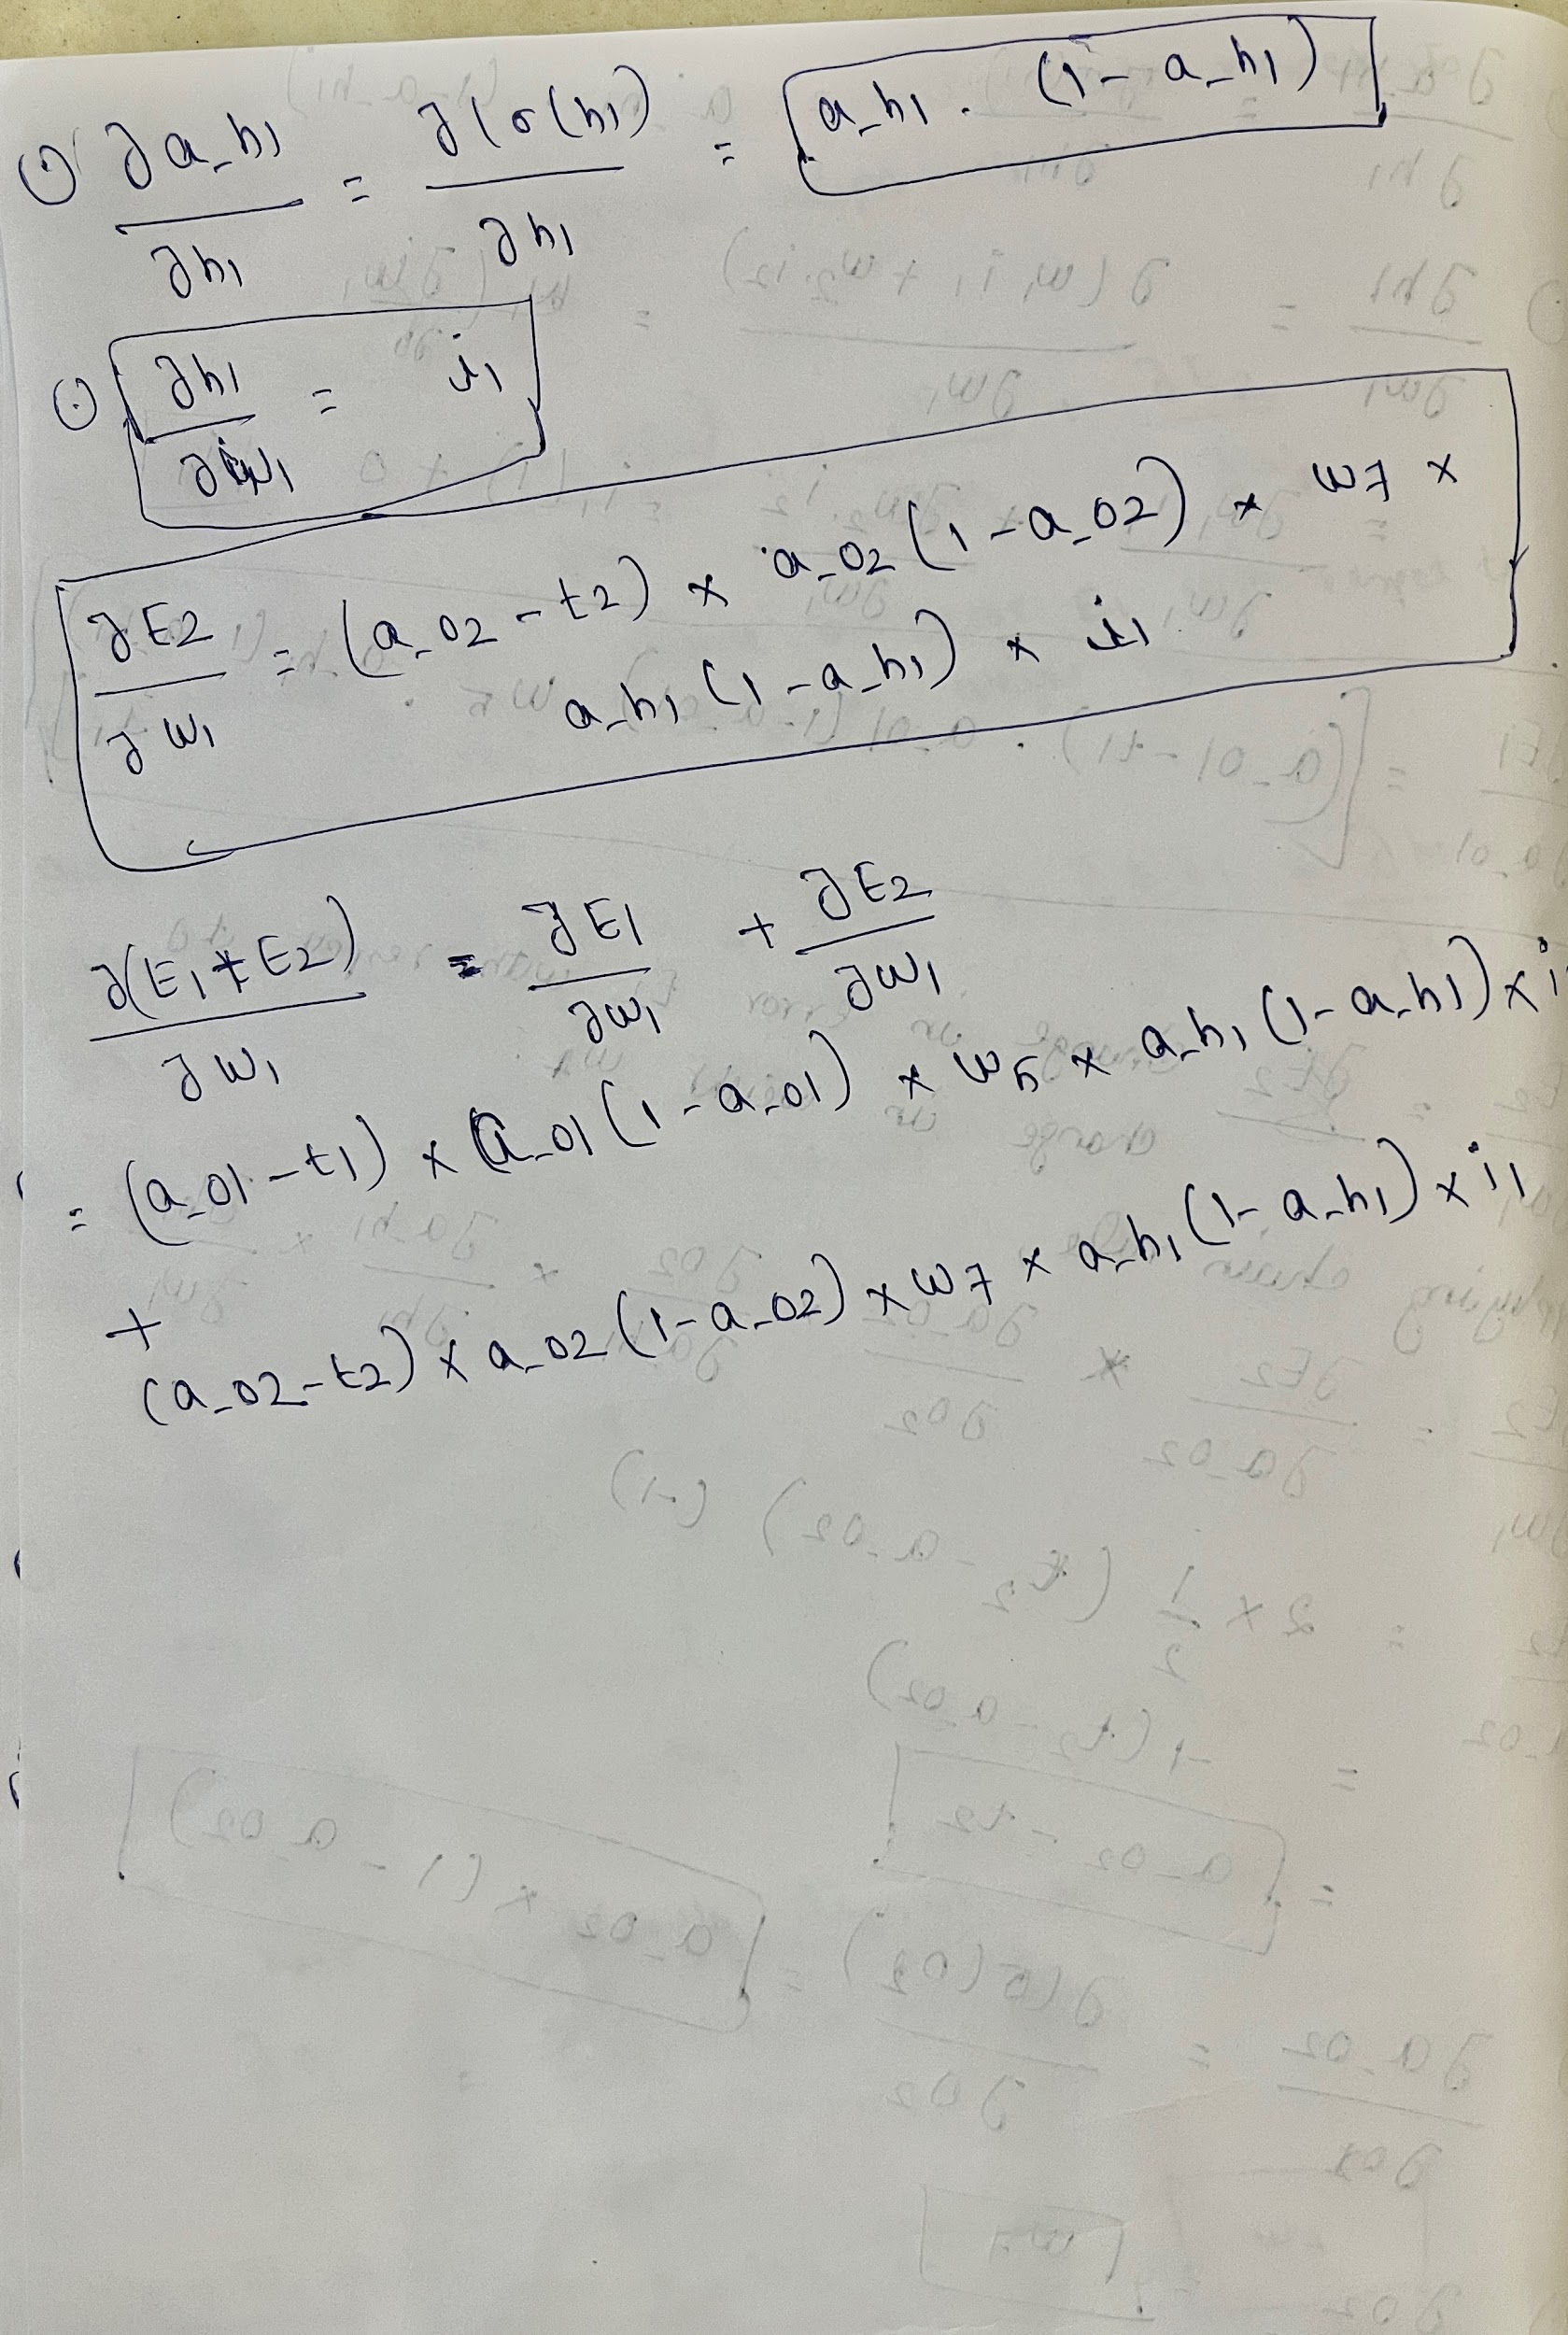 ⊙ ∂a_h1/∂h1 = ∂(σ(h1)/∂h1 = a_h1 . (1 - a_h1)
⊙ ∂h1/∂w1 = i1
∂E2/∂w1 = (a_02 - t2) × a_02 (1 - a_02) × w7 ×
a_h1 (1 - a_h1) × i1
∂(E1+E2)/∂w1 = ∂E1/∂w1 + ∂E2/∂w1
= (a_01 - t1) × a_01 (1 - a_01) × w5 × a_h1 (1 - a_h1) × i
+
(a_02 - t2) × a_02 (1 - a_02) × w7 × a_h1 (1 - a_h1) × i1